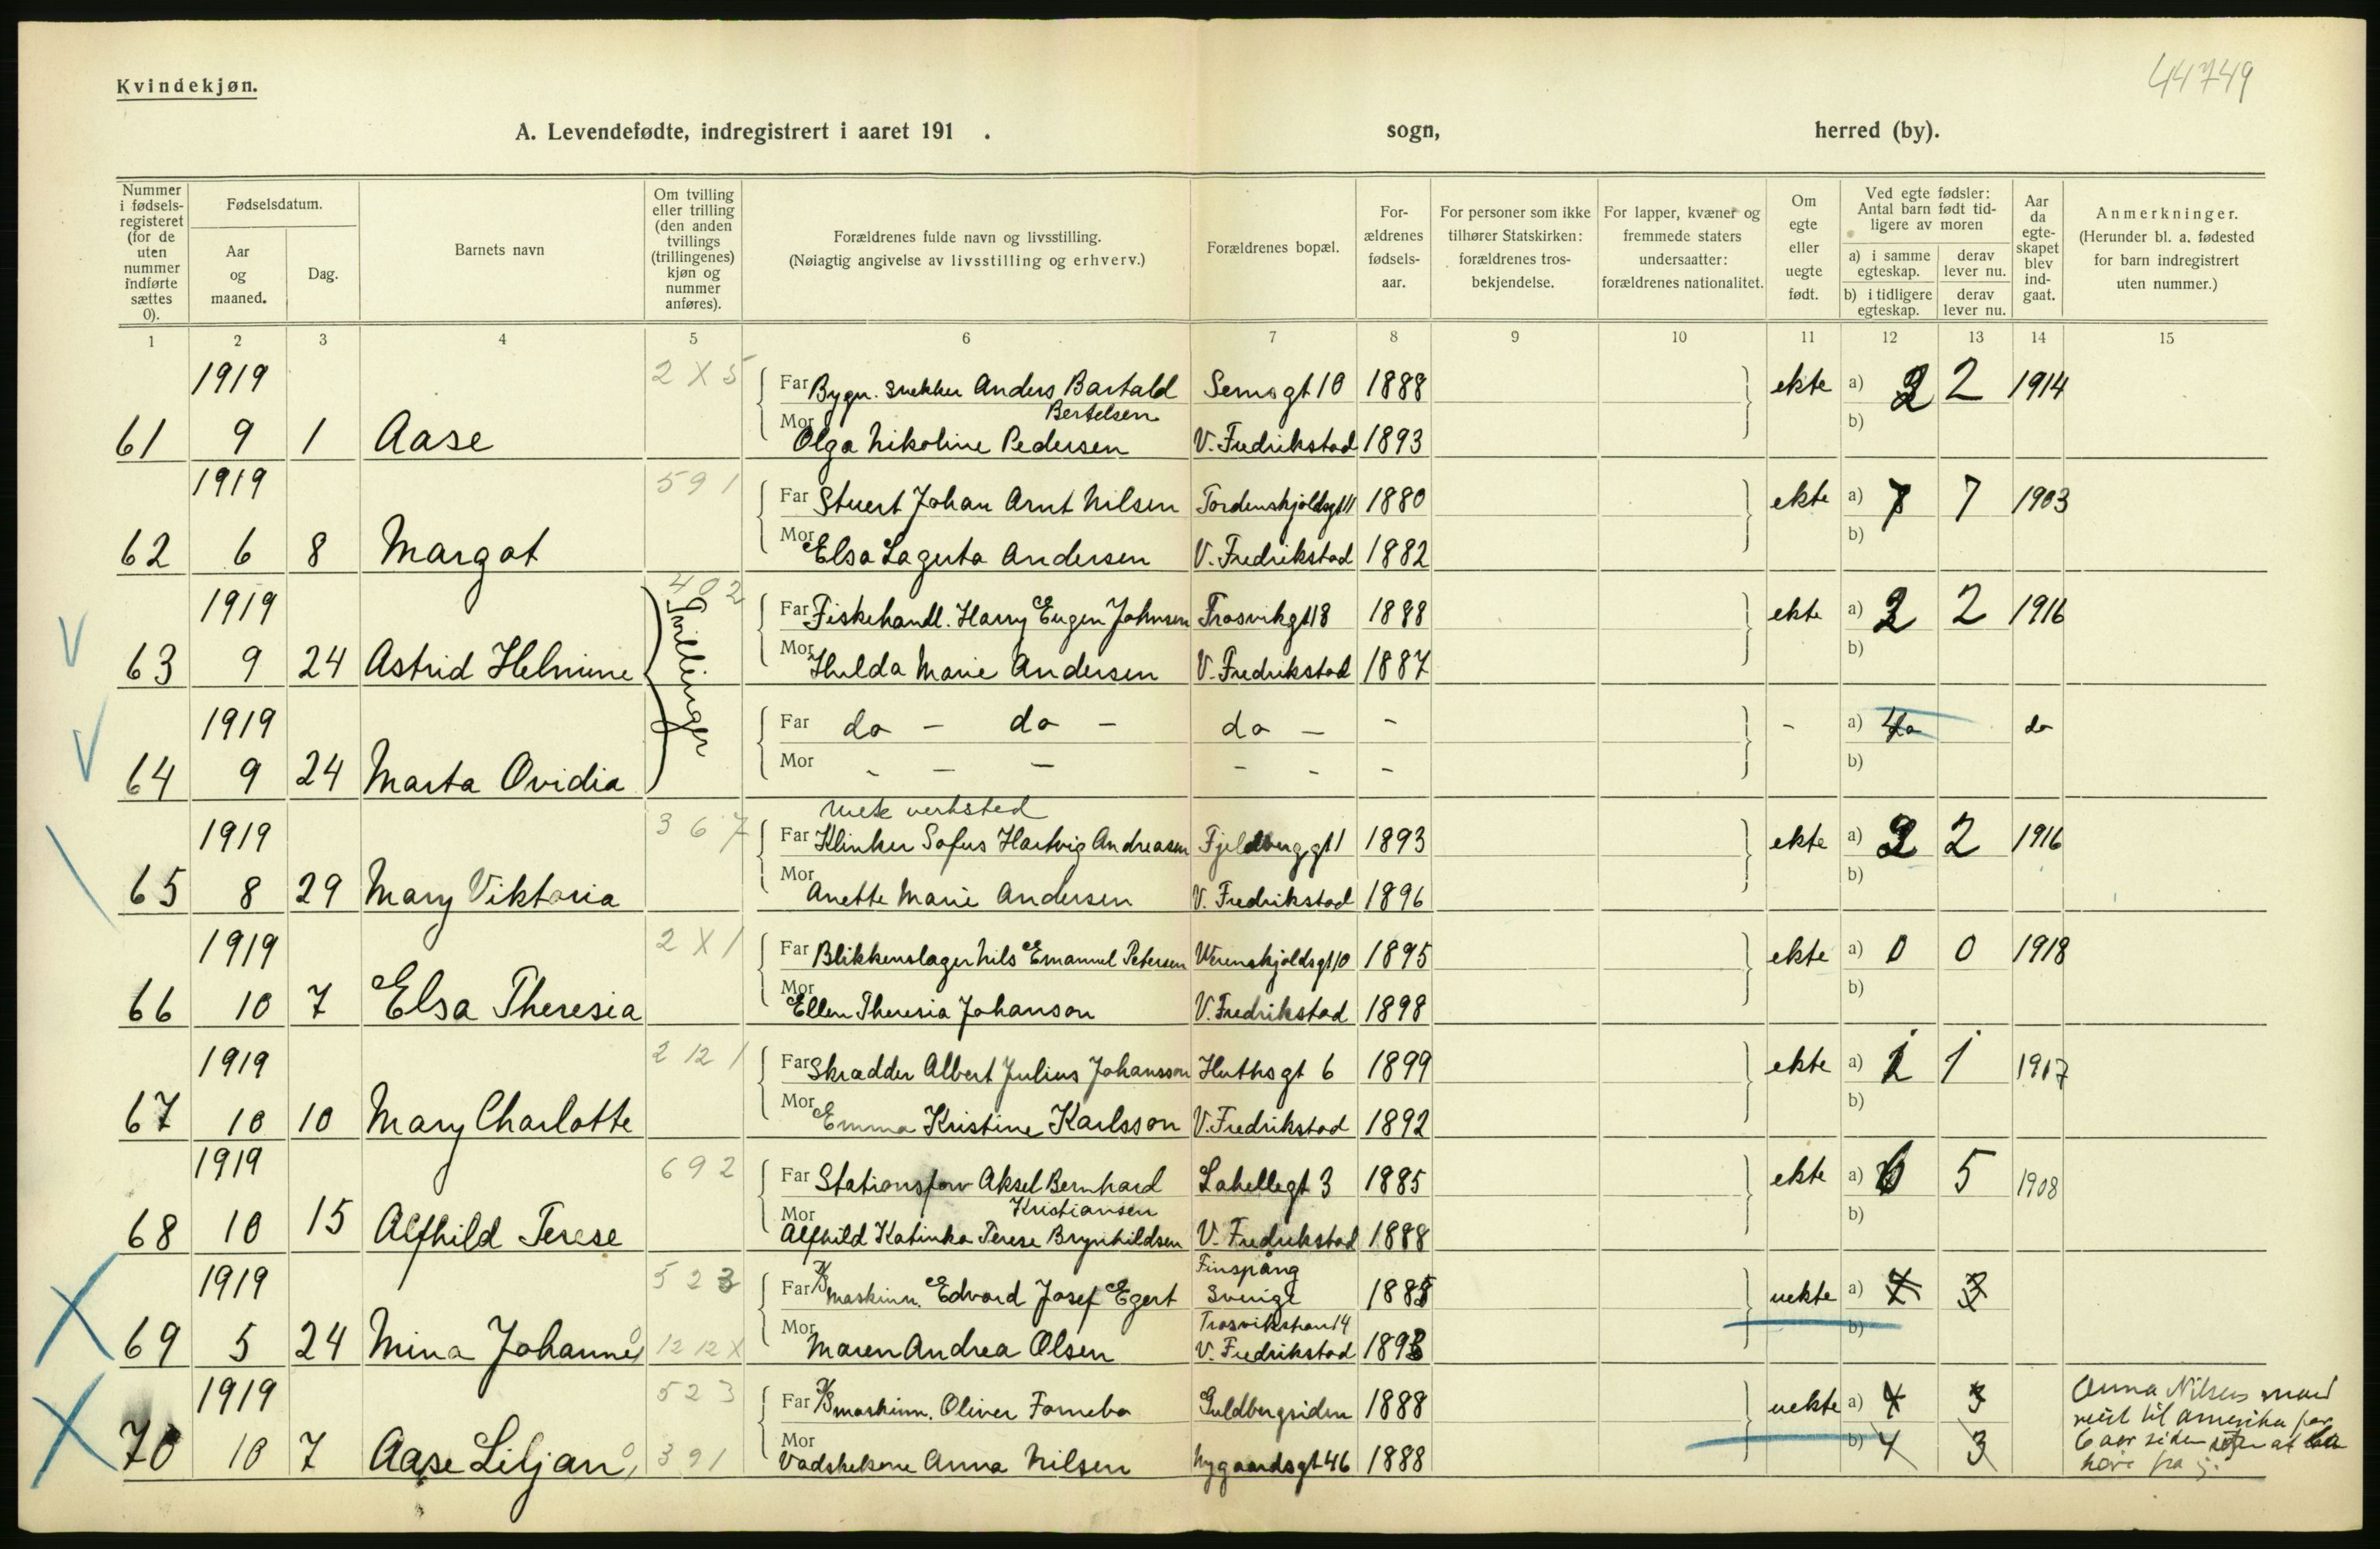 Kvindekjøn.
44749
A. Levendefødte, indregistrert i aaret 191 . sogn, herred (by).
Nummer i fødsels-registeret (for de uten nummer indførte sættes 0).
Fødselsdatum.
Aar og maaned.
Dag.
Barnets navn
Om tvilling eller trilling (den anden tvillings (trillingenes) kjøn og nummer anføres).
Forældrenes fulde navn og livsstilling.
(Nøiagtig angivelse av livsstilling og erhverv.)
Forældrenes bopæl.
For-ældrenes fødsels-aar.
For personer som ikke tilhører Statskirken: forældrenes tros-bekjendelse.
For lapper, kvæner og fremmede staters undersaatter: forældrenes nationalitet.
Om egte eller uegte født.
Ved egte fødsler: Antal barn født tid-ligere av moren
a) i samme egteskap.
derav lever nu.
b) i tidligere egteskap.
derav lever nu.
Aar da egte-skapet blev ind-gaat.
Anmerkninger.
(Herunder bl. a. fødested for barn indregistrert uten nummer.)
1 2 3 4 5 6 7 8 9 10 11 12 13 14 15
1919 2 X 5 Far Bygn. snekker Anders Bartald Sems gt 10 1888 ekte a) 2 2 1914
Bertelsen
61 9 1 Aase Mor Olga Nikoline Pedersen V. Fredrikstad 1893 b)
1919 591 Far Stuert Johan Arnt Nilsen Tordenskjoldsgt 11 1880 ekte a) 7 7 1903
62 6 8 Margot Mor Elsa Lagerta Andersen V. Fredrikstad 1882 b)
1919 402 Far Fiskehandl. Harry Eugen Johnsen Trosvikgt 18 1888 ekte a) 2 2 1916
Tvillinger
63 9 24 Astrid Helmine Mor Hulda Marie Andersen V. Fredrikstad 1887 b)
1919 Far do - do - do - - - a) do do
64 9 24 Marta Ovidia Mor - - - - - - b)
mek verksted
1919 367 Far Klinker Sofus Hartvig Andreasen Fjeldberggt 1 1893 ekte a) 2 2 1916
65 8 29 Mary Viktoria Mor Anette Marie Andersen V. Fredrikstad 1896 b)
1919 2 X 1 Far Blikkenslager Nils Emanuel Petersen Werenskjoldsgt 10 1895 ekte a) 0 0 1918
66 10 7 Elsa Theresia Mor Ellen Theresia Johanson V. Fredrikstad 1898 b)
1919 2 12 1 Far Skrædder Albert Julius Johansson Huthsgt 6 1899 ekte a) 1 1 1917
67 10 10 Mary Charlotte Mor Emma Kristine Karlsson V. Fredrikstad 1892 b)
1919 692 Far Stationsforv Aksel Bernhard Lahellegt 3 1885 ekte a) 6 5 1908
Kristiansen
68 10 15 Alfhild Terese Mor Alfhild Katinka Terese Brynhildsen V. Fredrikstad 1888 b)
Finspång
1919 523 Far maskinn. Edvard Josef Egert Sverige 1885 uekte a) 4 3
Trosvikstran 14
69 5 24 Mina Johanne 12 12 X Mor Maren Andrea Olsen V. Fredrikstad 1893 b)
1919 523 Far maskinn. Oliver Fornebo Guldbergsiden 1888 uekte a) 4 3
70 10 7 Aase Liljan 391 Mor Vadskekone Anna Nilsen Nygaardsgt 46 1888 b) 4 3
Anna Nilsens mand
reist til Amerika for
6 aar siden at
høre fra